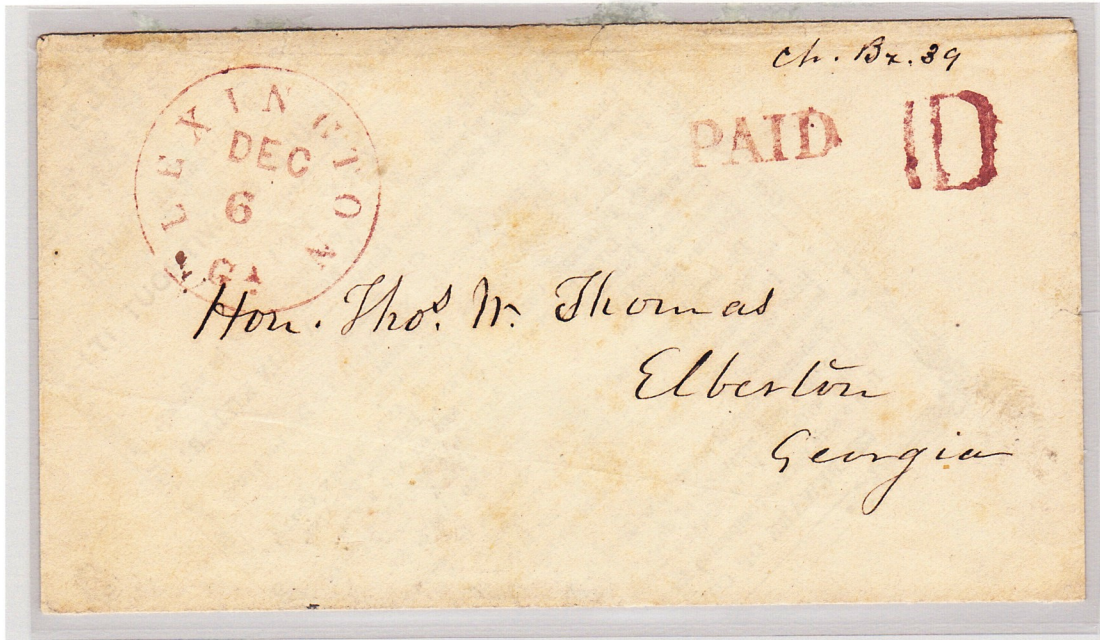 Ch. Bx. 39
LEXINGTON
DEC
6
GA
PAID 10
Hon. Thos. W. Thomas
Elberton
Georgia